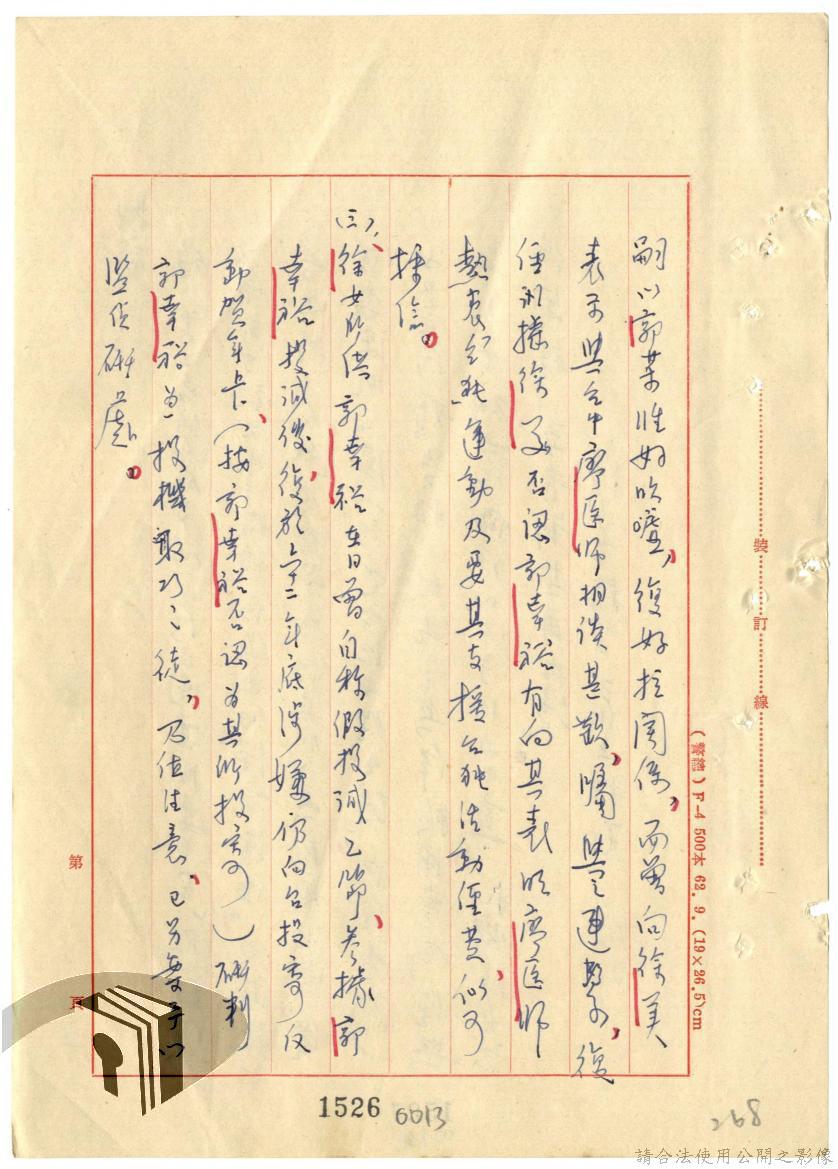 嗣以郭某性好吹噓，復好拉關係，而曾向徐美
表示與台中廖医师相談甚歡，囑與之連繫，復
經訊據徐　否認郭幸裕有向其表明廖医师
熱衷「台独」運動及要其支援台独活動經費，似可
採信。
(三)、徐女所供郭幸裕昔日曾自称假投誠乙節，參據郭
幸裕投誠後，復於六十二年底涉嫌仍向台投寄反
動賀年卡、（按郭幸裕否認為其所投寄）研判
郭幸裕為一投機取巧之徒，乃值注意，已另案予以
監偵研處。
裝訂線
(警總) F-4 500本 62. 9. (19×26.5)cm
第
頁
1526
0013
268
請合法使用公開之影像